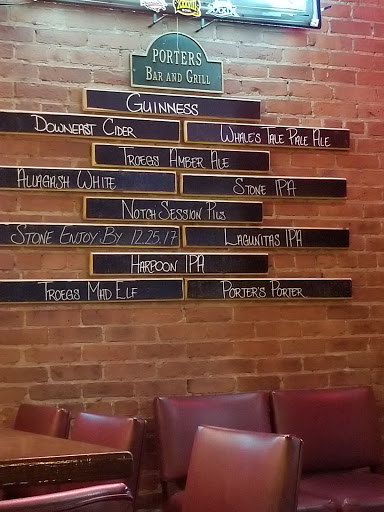 PORTERS
BAR AND GRILL
GUINNESS
DOWNEAST CIDER
WHALE'S TALE PALE ALE
TROEGS AMBER ALE
ALLAGASH WHITE
STONE IPA
NOTCH SESSION PILS
STONE ENJOY BY 12.25.17
LAGUNITAS IPA
HARPOON IPA
TROEGS MAD ELF
PORTER'S PORTER